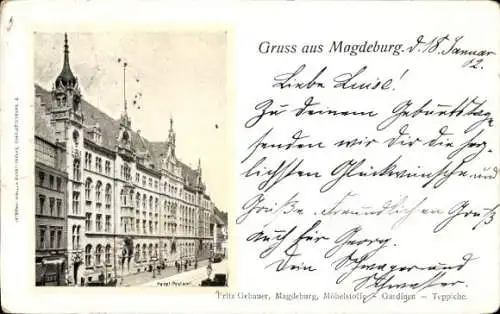 Gruss aus Magdeburg. d. 18. Januar
02.
Liebe Luise!
Zu deinem Geburtstage
senden wir dir die herz-
lichsten Glückwünsche und
Grüße. Freundlichen Gruß
auch für Georg.
Dein Schwager und
Schwester.
Haupt-Postamt
Fritz Gebauer, Magdeburg, Möbelstoffe - Gardinen - Teppiche.